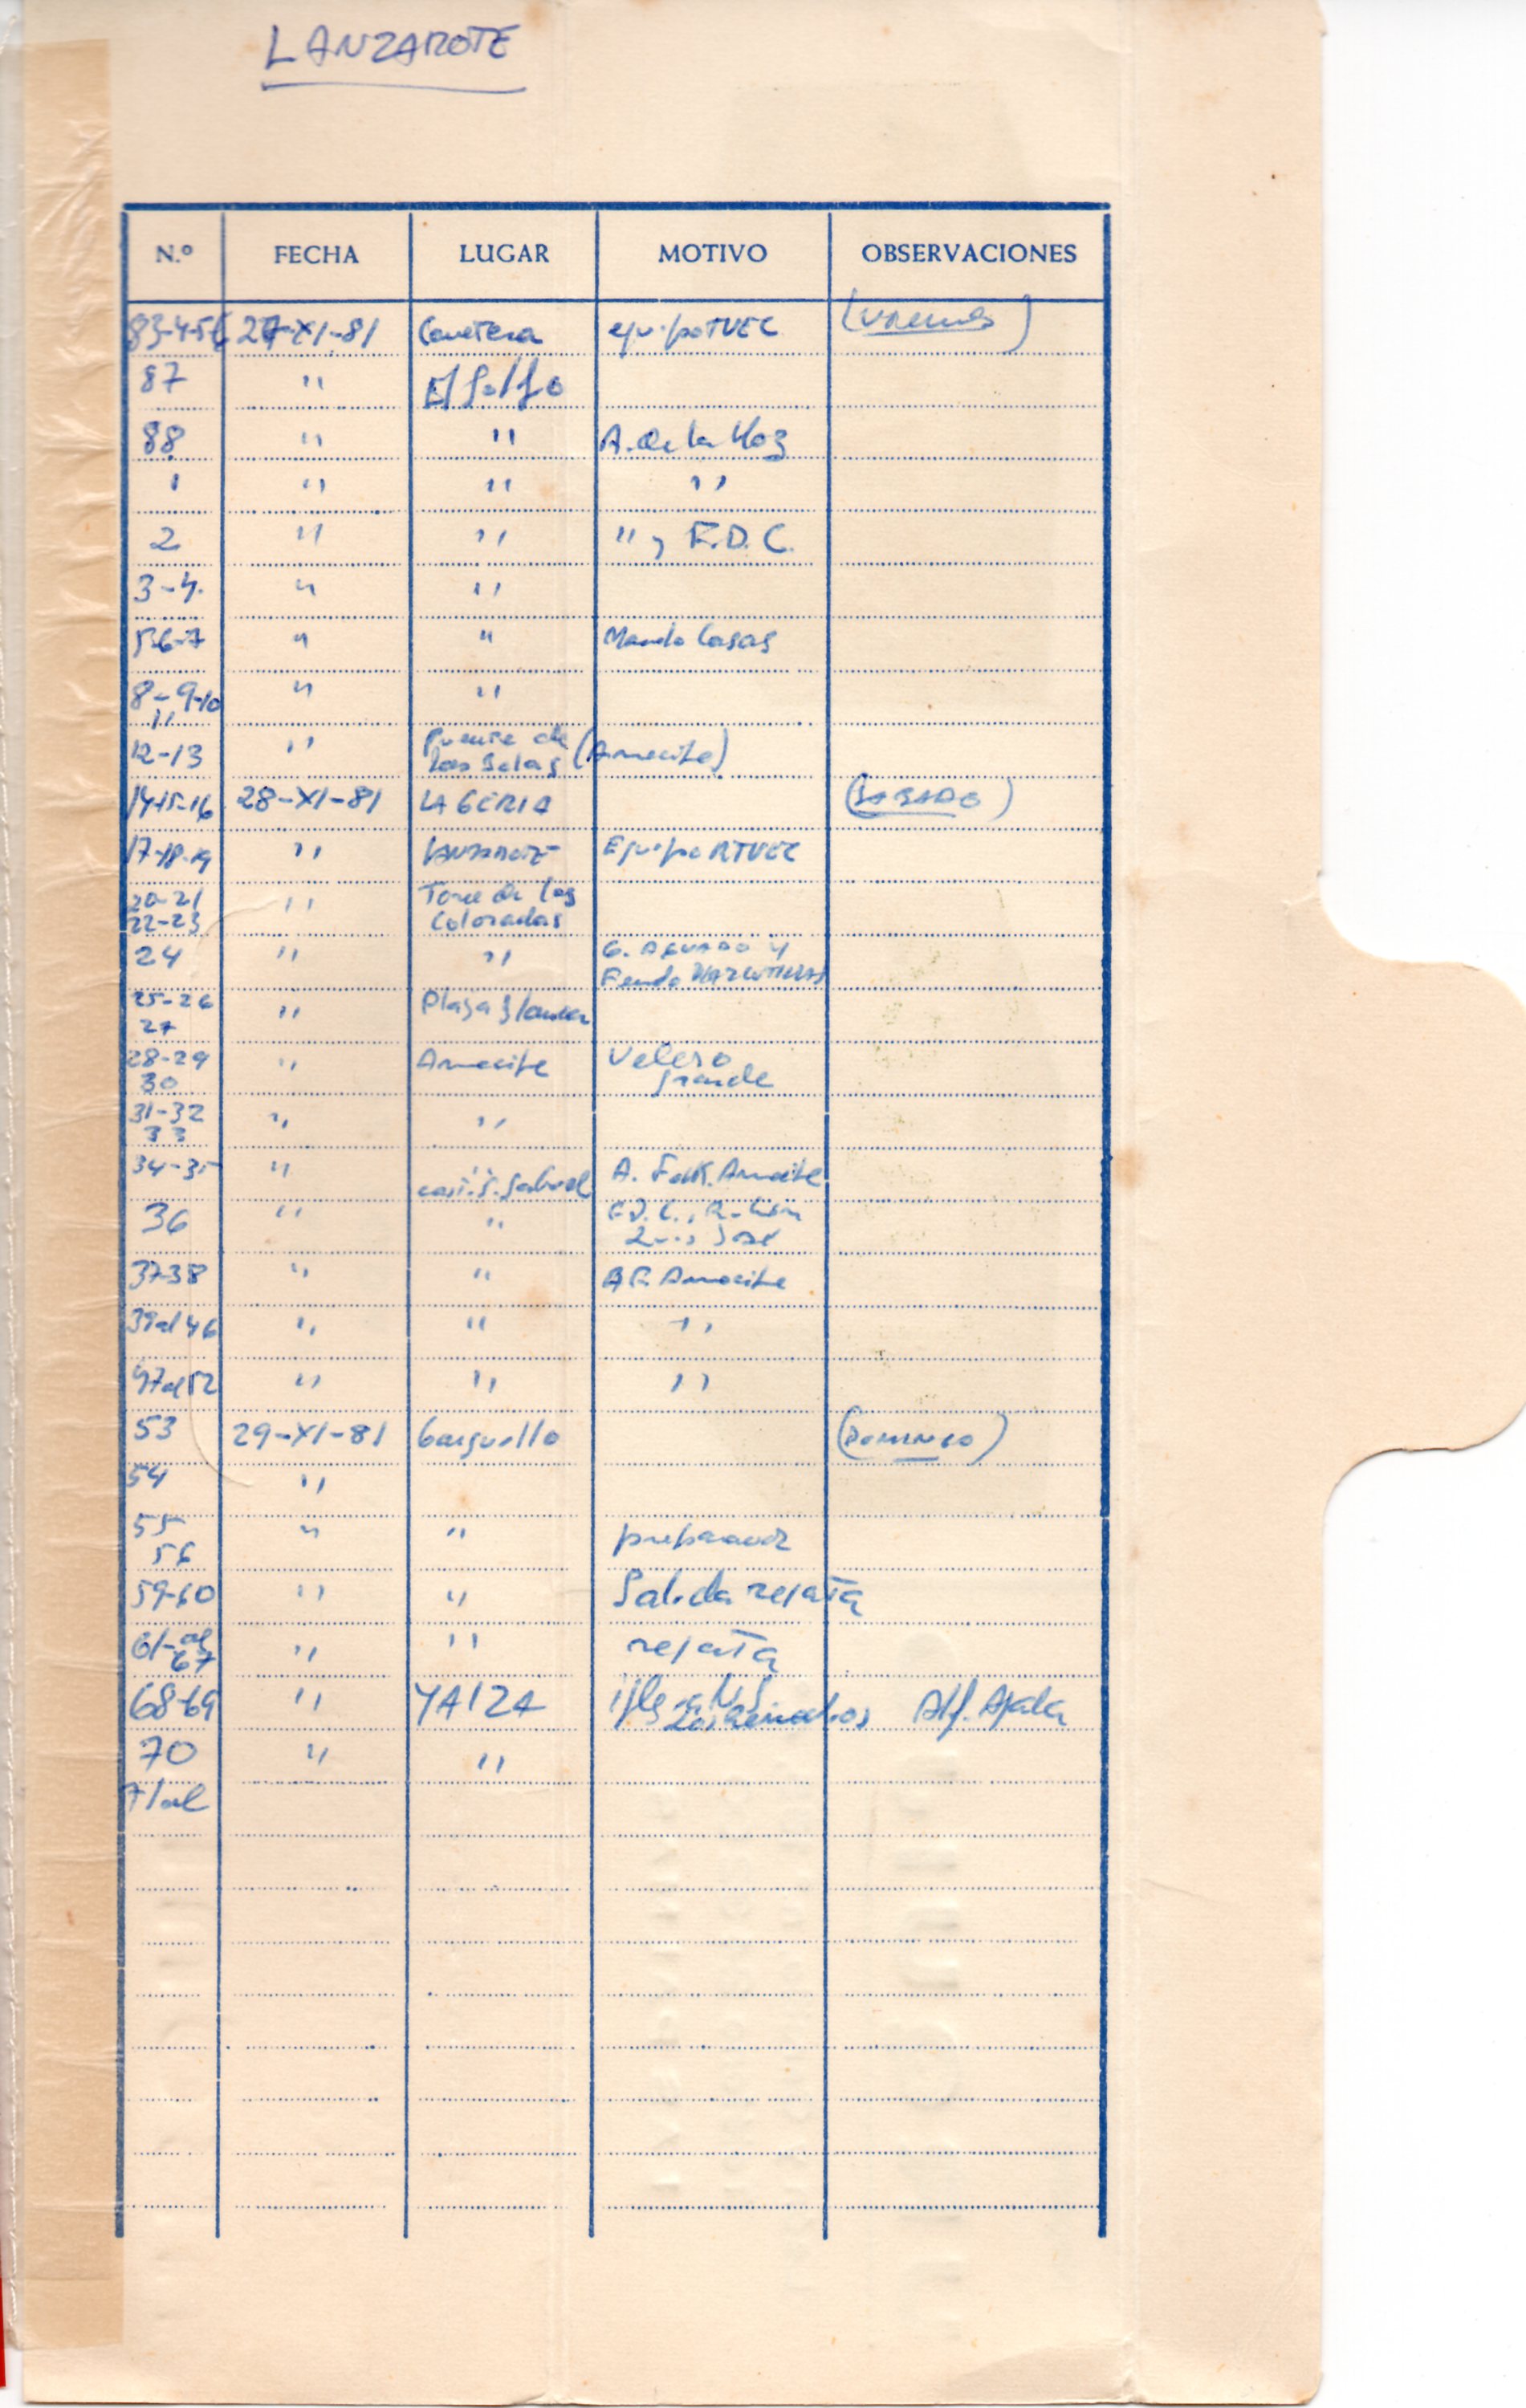 LANZAROTE
N.º FECHA LUGAR MOTIVO OBSERVACIONES
83-4-5-6 27-XI-81 Carretera equipo TVEC (VIERNES)
87 " El Golfo
88 " " A. de la Hoz
1 " " "
2 " " " y F.D.C.
3-4 " "
5-6-7 " " Casas
8-9-10 " "
11
12-13 " Puente de (Arrecife)
las Bolas
14-15-16 28-XI-81 LA GERIA (SABADO)
17-18-19 " LANZAROTE Equipo RTVEC
20-21 " Torre de las
22-23 Coloradas
24 " " G. AGUADO y
25-26 " Playa Blanca
27
28-29 " Arrecife Velero
30 grande
31-32 " "
33
34-35 " cast. S. Gabriel A. Folk. Arrecife
36 " " F.D.C.,
Luis José
37-38 " " A.F. Arrecife
39 al 46 " " "
47 al 52 " " "
53 29-XI-81 (DOMINGO)
54 "
55 " "
56
59-60 " " Salida regata
61-al " " regata
67
68-69 " YAIZA N.S. Alf. Ayala
Los Remedios
70 " "
71 al